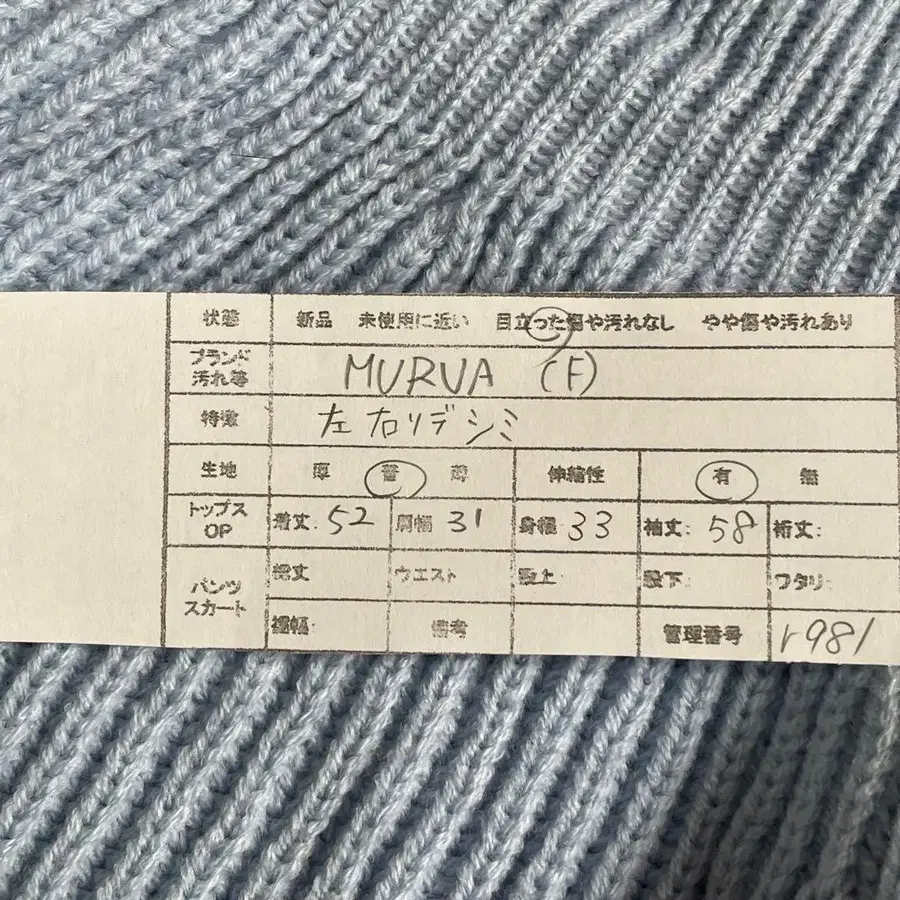 状態 新品 未使用に近い 目立った傷や汚れなし やや傷や汚れあり
ブランド
汚れ等 MURUA (F)
特徴 左右リデシミ
生地 厚 普 薄 伸縮性 有 無
トップス
OP 着丈: 52 肩幅 31 身幅 33 袖丈: 58 裄丈:
パンツ
スカート 総丈 ウエスト 股上: 股下: ワタリ:
裾幅: 備考 管理番号 r981